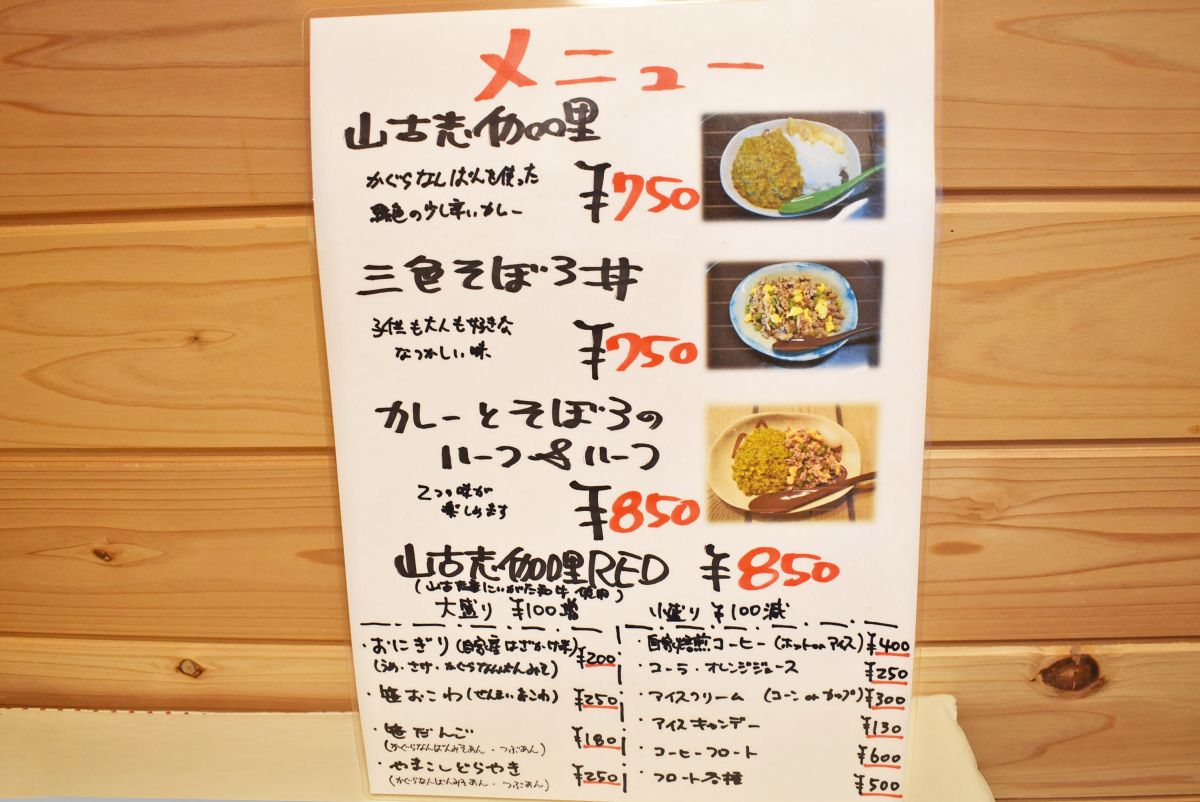 メニュー
山古志伽哩
かぐらなんばんを使った
緑色の少し辛いカレー
¥750
三色そぼろ丼
子供も大人も好きな
なつかしい味
¥750
カレーとそぼろの
ハーフ&ハーフ
2つの味が
楽しめます
¥850
山古志伽哩RED ¥850
(山古志産にいがた和牛使用)
大盛り ¥100増 小盛り ¥100減
・おにぎり(自家産はざかけ米) ¥200
(うめ・さけ・かぐらなんばんみそ)
・笹おこわ(ぜんまいおこわ) ¥250
・笹だんご ¥180
(かぐらなんばんみそあん・つぶあん)
・やまこしどらやき ¥250
(かぐらなんばんみそあん・つぶあん)
・自家焙煎コーヒー(ホットorアイス) ¥400
・コーラ・オレンジジュース ¥250
・アイスクリーム (コーンorカップ) ¥300
・アイスキャンデー ¥130
・コーヒーフロート ¥600
・フロート各種 ¥500